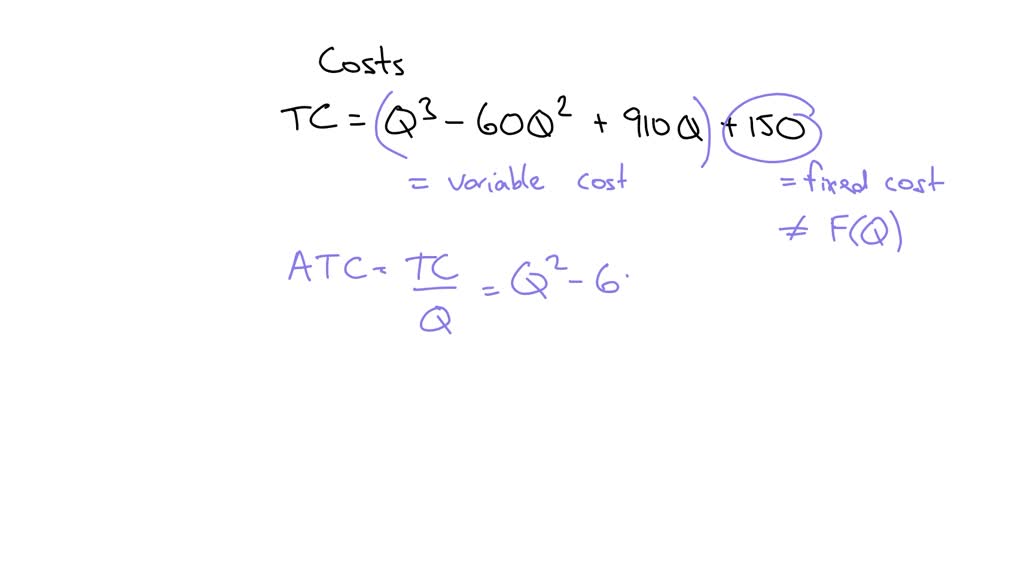 Costs
TC = (Q³ - 60Q² + 910Q) + 150
= variable cost = fixed cost
≠ F(Q)
ATC = TC/Q = Q² - 6